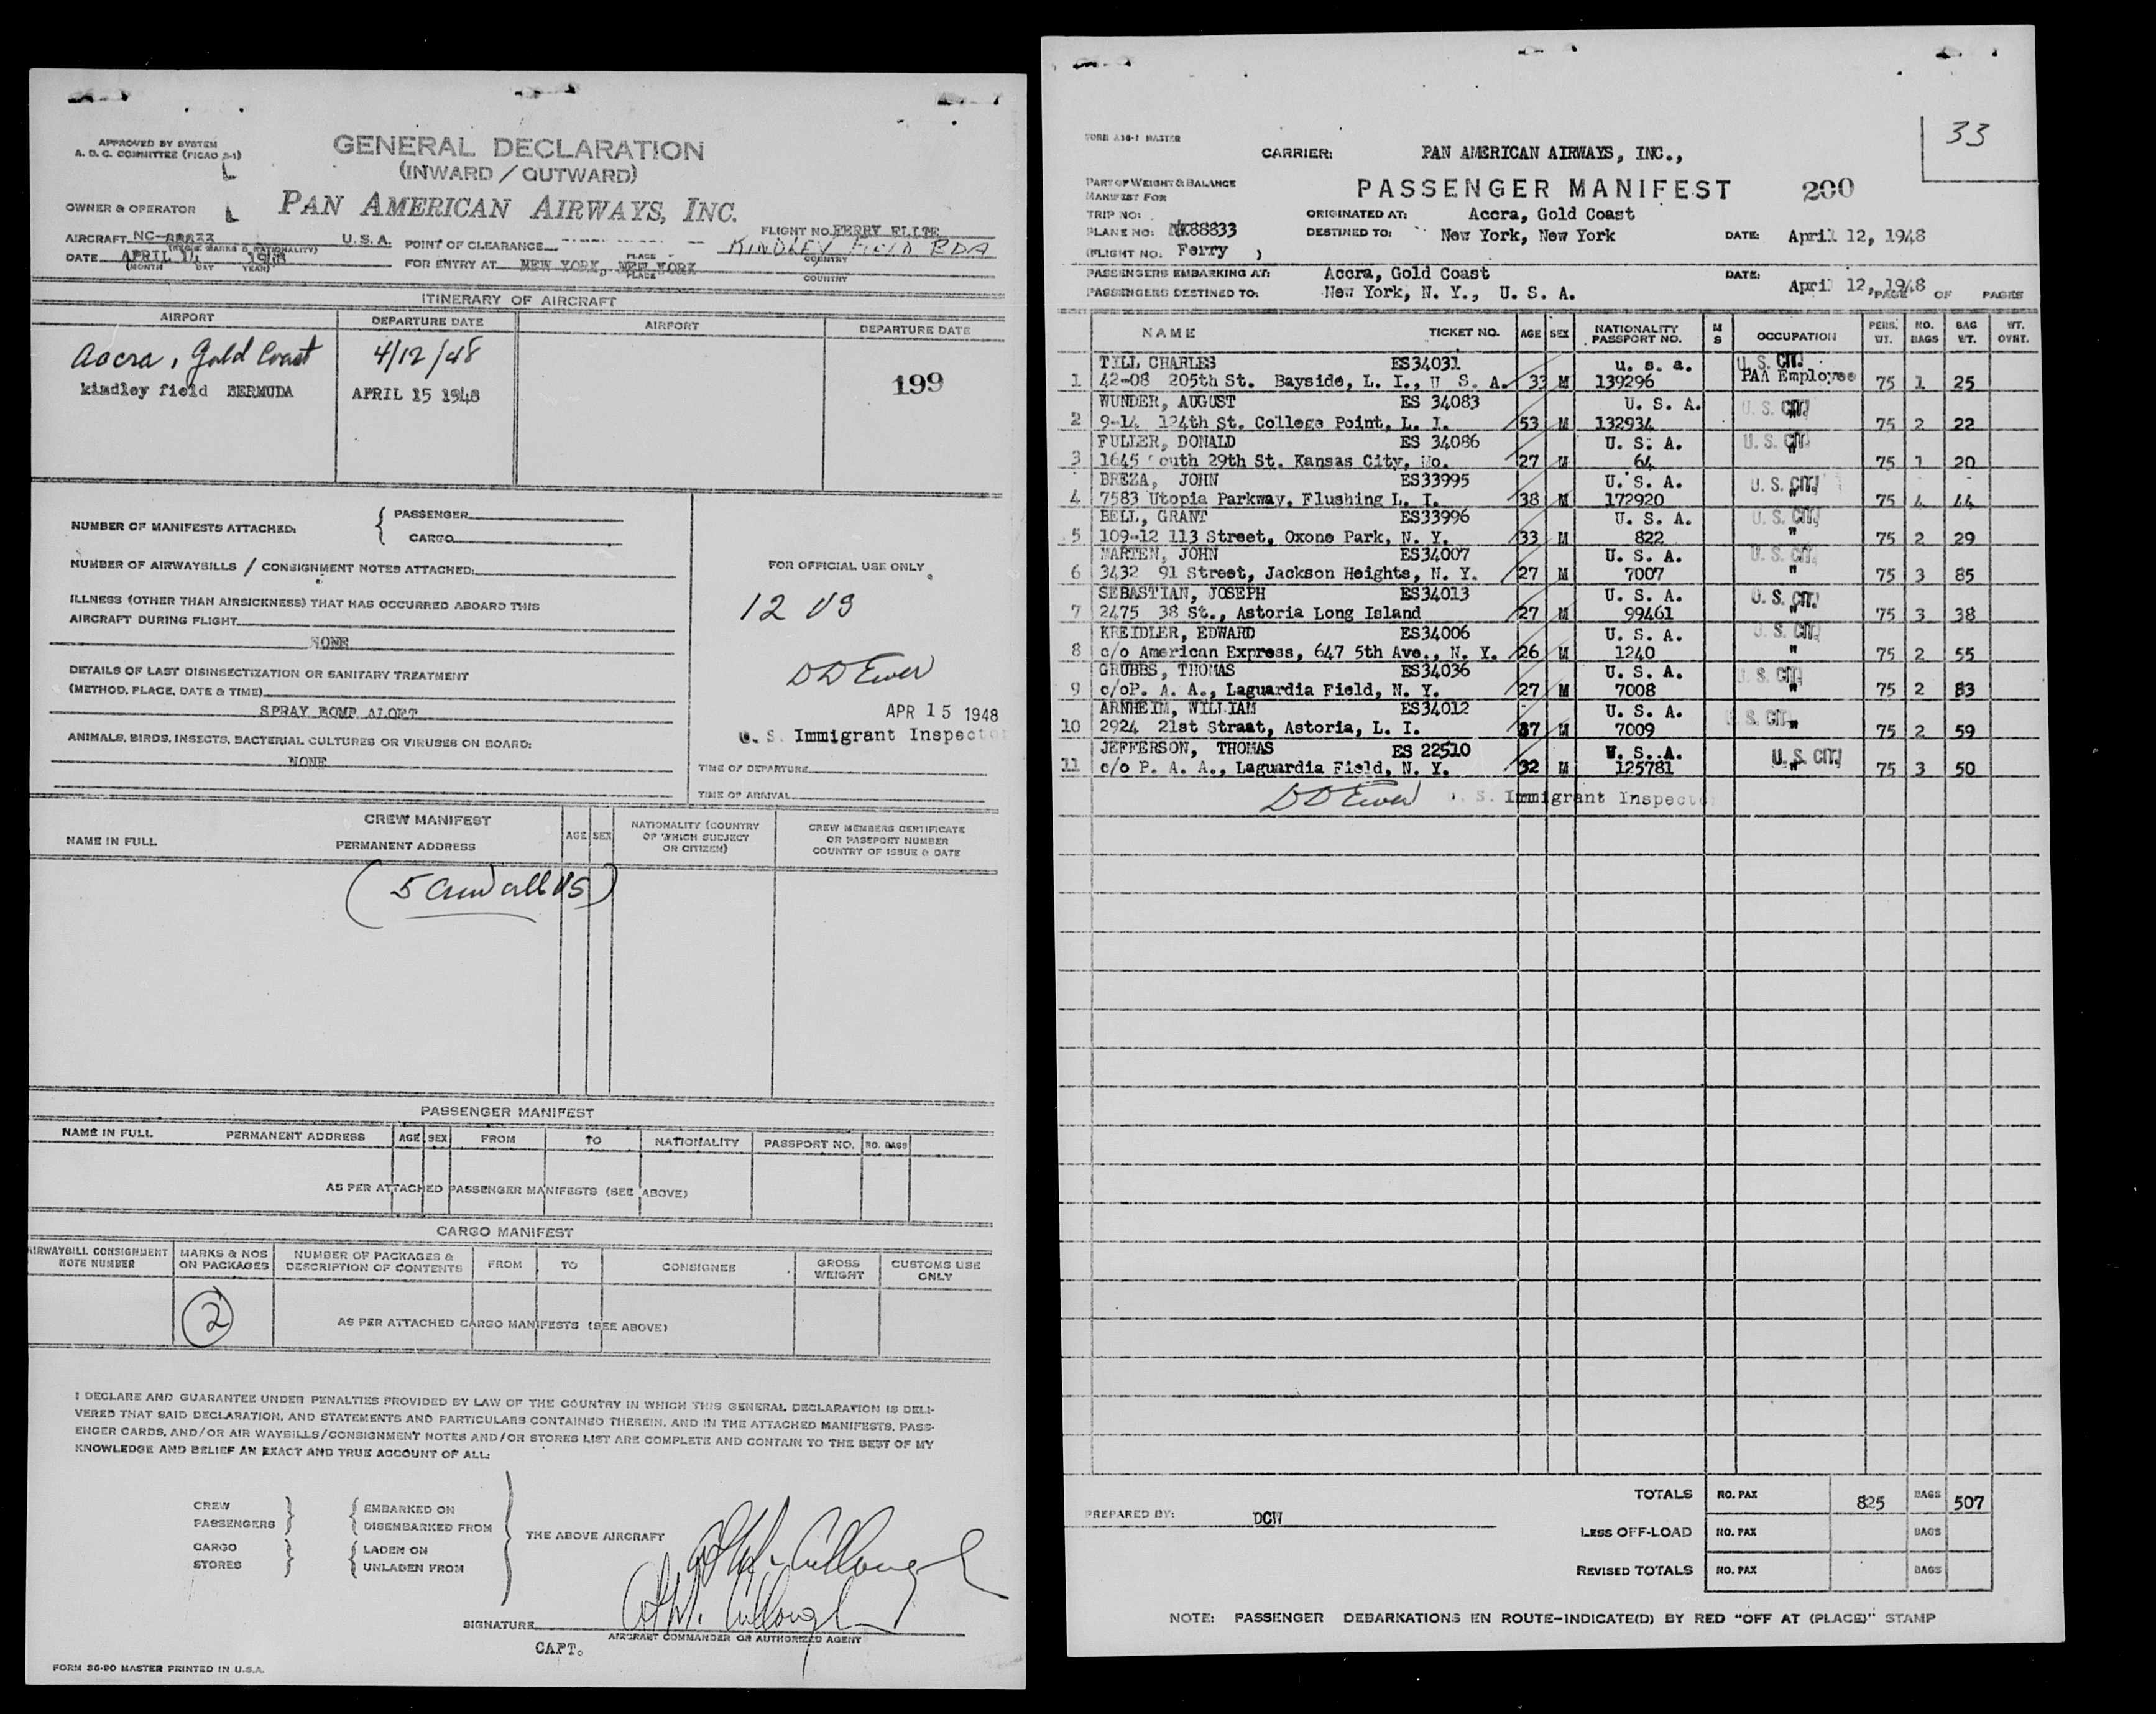 APPROVED BY SYSTEM
A. D. C. COMMITTEE (PICAO 2-1)
GENERAL DECLARATION
(INWARD / OUTWARD)
OWNER & OPERATOR
PAN AMERICAN AIRWAYS, INC.
FLIGHT NO. FERRY FLITE
AIRCRAFT NC-88833 U.S.A. POINT OF CLEARANCE KINDLEY FIELD BDA
(REG'S MARKS & NATIONALITY) PLACE COUNTRY
DATE APRIL 1948 FOR ENTRY AT NEW YORK, NEW YORK
(MONTH DAY YEAR) PLACE COUNTRY
ITINERARY OF AIRCRAFT
AIRPORT DEPARTURE DATE AIRPORT DEPARTURE DATE
Accra, Gold Coast 4/12/48
kindley field BERMUDA APRIL 15 1948
199
NUMBER OF MANIFESTS ATTACHED: { PASSENGER
CARGO
NUMBER OF AIRWAYBILLS / CONSIGNMENT NOTES ATTACHED:
ILLNESS (OTHER THAN AIRSICKNESS) THAT HAS OCCURRED ABOARD THIS
AIRCRAFT DURING FLIGHT
NONE
DETAILS OF LAST DISINSECTIZATION OR SANITARY TREATMENT
(METHOD, PLACE, DATE & TIME)
SPRAY BOMB ALOFT
ANIMALS, BIRDS, INSECTS, BACTERIAL CULTURES OR VIRUSES ON BOARD:
NONE
FOR OFFICIAL USE ONLY
12 US
D D Ewer
APR 15 1948
U. S. Immigrant Inspector
TIME OF DEPARTURE
TIME OF ARRIVAL
CREW MANIFEST
NAME IN FULL PERMANENT ADDRESS AGE SEX NATIONALITY (COUNTRY OF WHICH SUBJECT OR CITIZEN) CREW MEMBERS CERTIFICATE OR PASSPORT NUMBER COUNTRY OF ISSUE & DATE
(5 Crew all US)
PASSENGER MANIFEST
NAME IN FULL PERMANENT ADDRESS AGE SEX FROM TO NATIONALITY PASSPORT NO. NO. BAGS
AS PER ATTACHED PASSENGER MANIFESTS (SEE ABOVE)
CARGO MANIFEST
AIRWAYBILL CONSIGNMENT NOTE NUMBER MARKS & NOS ON PACKAGES NUMBER OF PACKAGES & DESCRIPTION OF CONTENTS FROM TO CONSIGNEE GROSS WEIGHT CUSTOMS USE ONLY
2
AS PER ATTACHED CARGO MANIFESTS (SEE ABOVE)
I DECLARE AND GUARANTEE UNDER PENALTIES PROVIDED BY LAW OF THE COUNTRY IN WHICH THIS GENERAL DECLARATION IS DELI-
VERED THAT SAID DECLARATION, AND STATEMENTS AND PARTICULARS CONTAINED THEREIN, AND IN THE ATTACHED MANIFESTS, PASS-
ENGER CARDS, AND/OR AIR WAYBILLS/CONSIGNMENT NOTES AND/OR STORES LIST ARE COMPLETE AND CONTAIN TO THE BEST OF MY
KNOWLEDGE AND BELIEF AN EXACT AND TRUE ACCOUNT OF ALL:
CREW EMBARKED ON
PASSENGERS DISEMBARKED FROM
THE ABOVE AIRCRAFT
CARGO LADEN ON
STORES UNLADEN FROM
SIGNATURE
AIRCRAFT COMMANDER OR AUTHORIZED AGENT
CAPT.
FORM 86-90 MASTER PRINTED IN U.S.A.
33
FORM A36-1 MASTER
CARRIER: PAN AMERICAN AIRWAYS, INC.,
PART OF WEIGHT & BALANCE
MANIFEST FOR
PASSENGER MANIFEST 200
TRIP NO: ORIGINATED AT: Accra, Gold Coast
PLANE NO: 88833 DESTINED TO: New York, New York DATE: April 12, 1948
(FLIGHT NO: Ferry )
PASSENGERS EMBARKING AT: Accra, Gold Coast DATE: April 12, 1948
PASSENGERS DESTINED TO: New York, N. Y., U. S. A. PAGE OF PAGES
NAME TICKET NO. AGE SEX NATIONALITY PASSPORT NO. M S OCCUPATION PERS. WT. NO. BAGS BAG WT. WT. OVNT.
TILL CHARLES ES34031 U. S. A. U. S. CIT.
1 42-08 205th St. Bayside, L. I., U S. A. 33 M 139296 PAA Employee 75 1 25
WUNDER, AUGUST ES 34083 U. S. A. U. S. CIT.
2 9-14 124th St. College Point, L. I. 53 M 132934 " 75 2 22
FULLER, DONALD ES 34086 U. S. A. U. S. CIT.
3 1645 outh 29th St. Kansas City, Mo. 27 M 64 " 75 1 20
BREZA, JOHN ES33995 U. S. A. U. S. CIT.
4 7583 Utopia Parkway, Flushing L. I. 38 M 172920 " 75 4 44
BELL, GRANT ES33996 U. S. A. U. S. CIT.
5 109-12 113 Street, Oxone Park, N. Y. 33 M 822 " 75 2 29
MARTEN, JOHN ES34007 U. S. A. U. S. CIT.
6 3432 91 Street, Jackson Heights, N. Y. 27 M 7007 " 75 3 85
SEBASTIAN, JOSEPH ES34013 U. S. A. U. S. CIT.
7 2475 38 St., Astoria Long Island 27 M 99461 " 75 3 38
KREIDLER, EDWARD ES34006 U. S. A. U. S. CIT.
8 c/o American Express, 647 5th Ave., N. Y. 26 M 1240 " 75 2 55
GRUBBS, THOMAS ES34036 U. S. A. U. S. CIT.
9 c/oP. A. A., Laguardia Field, N. Y. 27 M 7008 " 75 2 83
ARNHEIM, WILLIAM ES34012 U. S. A. U. S. CIT.
10 2924 21st Straat, Astoria, L. I. 37 M 7009 " 75 2 59
JEFFERSON, THOMAS ES 22510 U. S. A. U. S. CIT.
11 c/o P. A. A., Laguardia Field, N. Y. 32 M 125781 " 75 3 50
D D Ewer U. S. Immigrant Inspector
TOTALS NO. PAX 825 BAGS 507
PREPARED BY: DCW
LESS OFF-LOAD NO. PAX BAGS
REVISED TOTALS NO. PAX BAGS
NOTE: PASSENGER DEBARKATIONS EN ROUTE-INDICATE(D) BY RED "OFF AT (PLACE)" STAMP